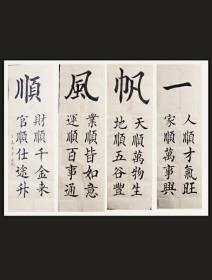 一帆風順
人順才氣旺
家順萬事興
天順萬物生
地順五谷豐
業順皆如意
運順百事通
財順千金来
官順仕途升